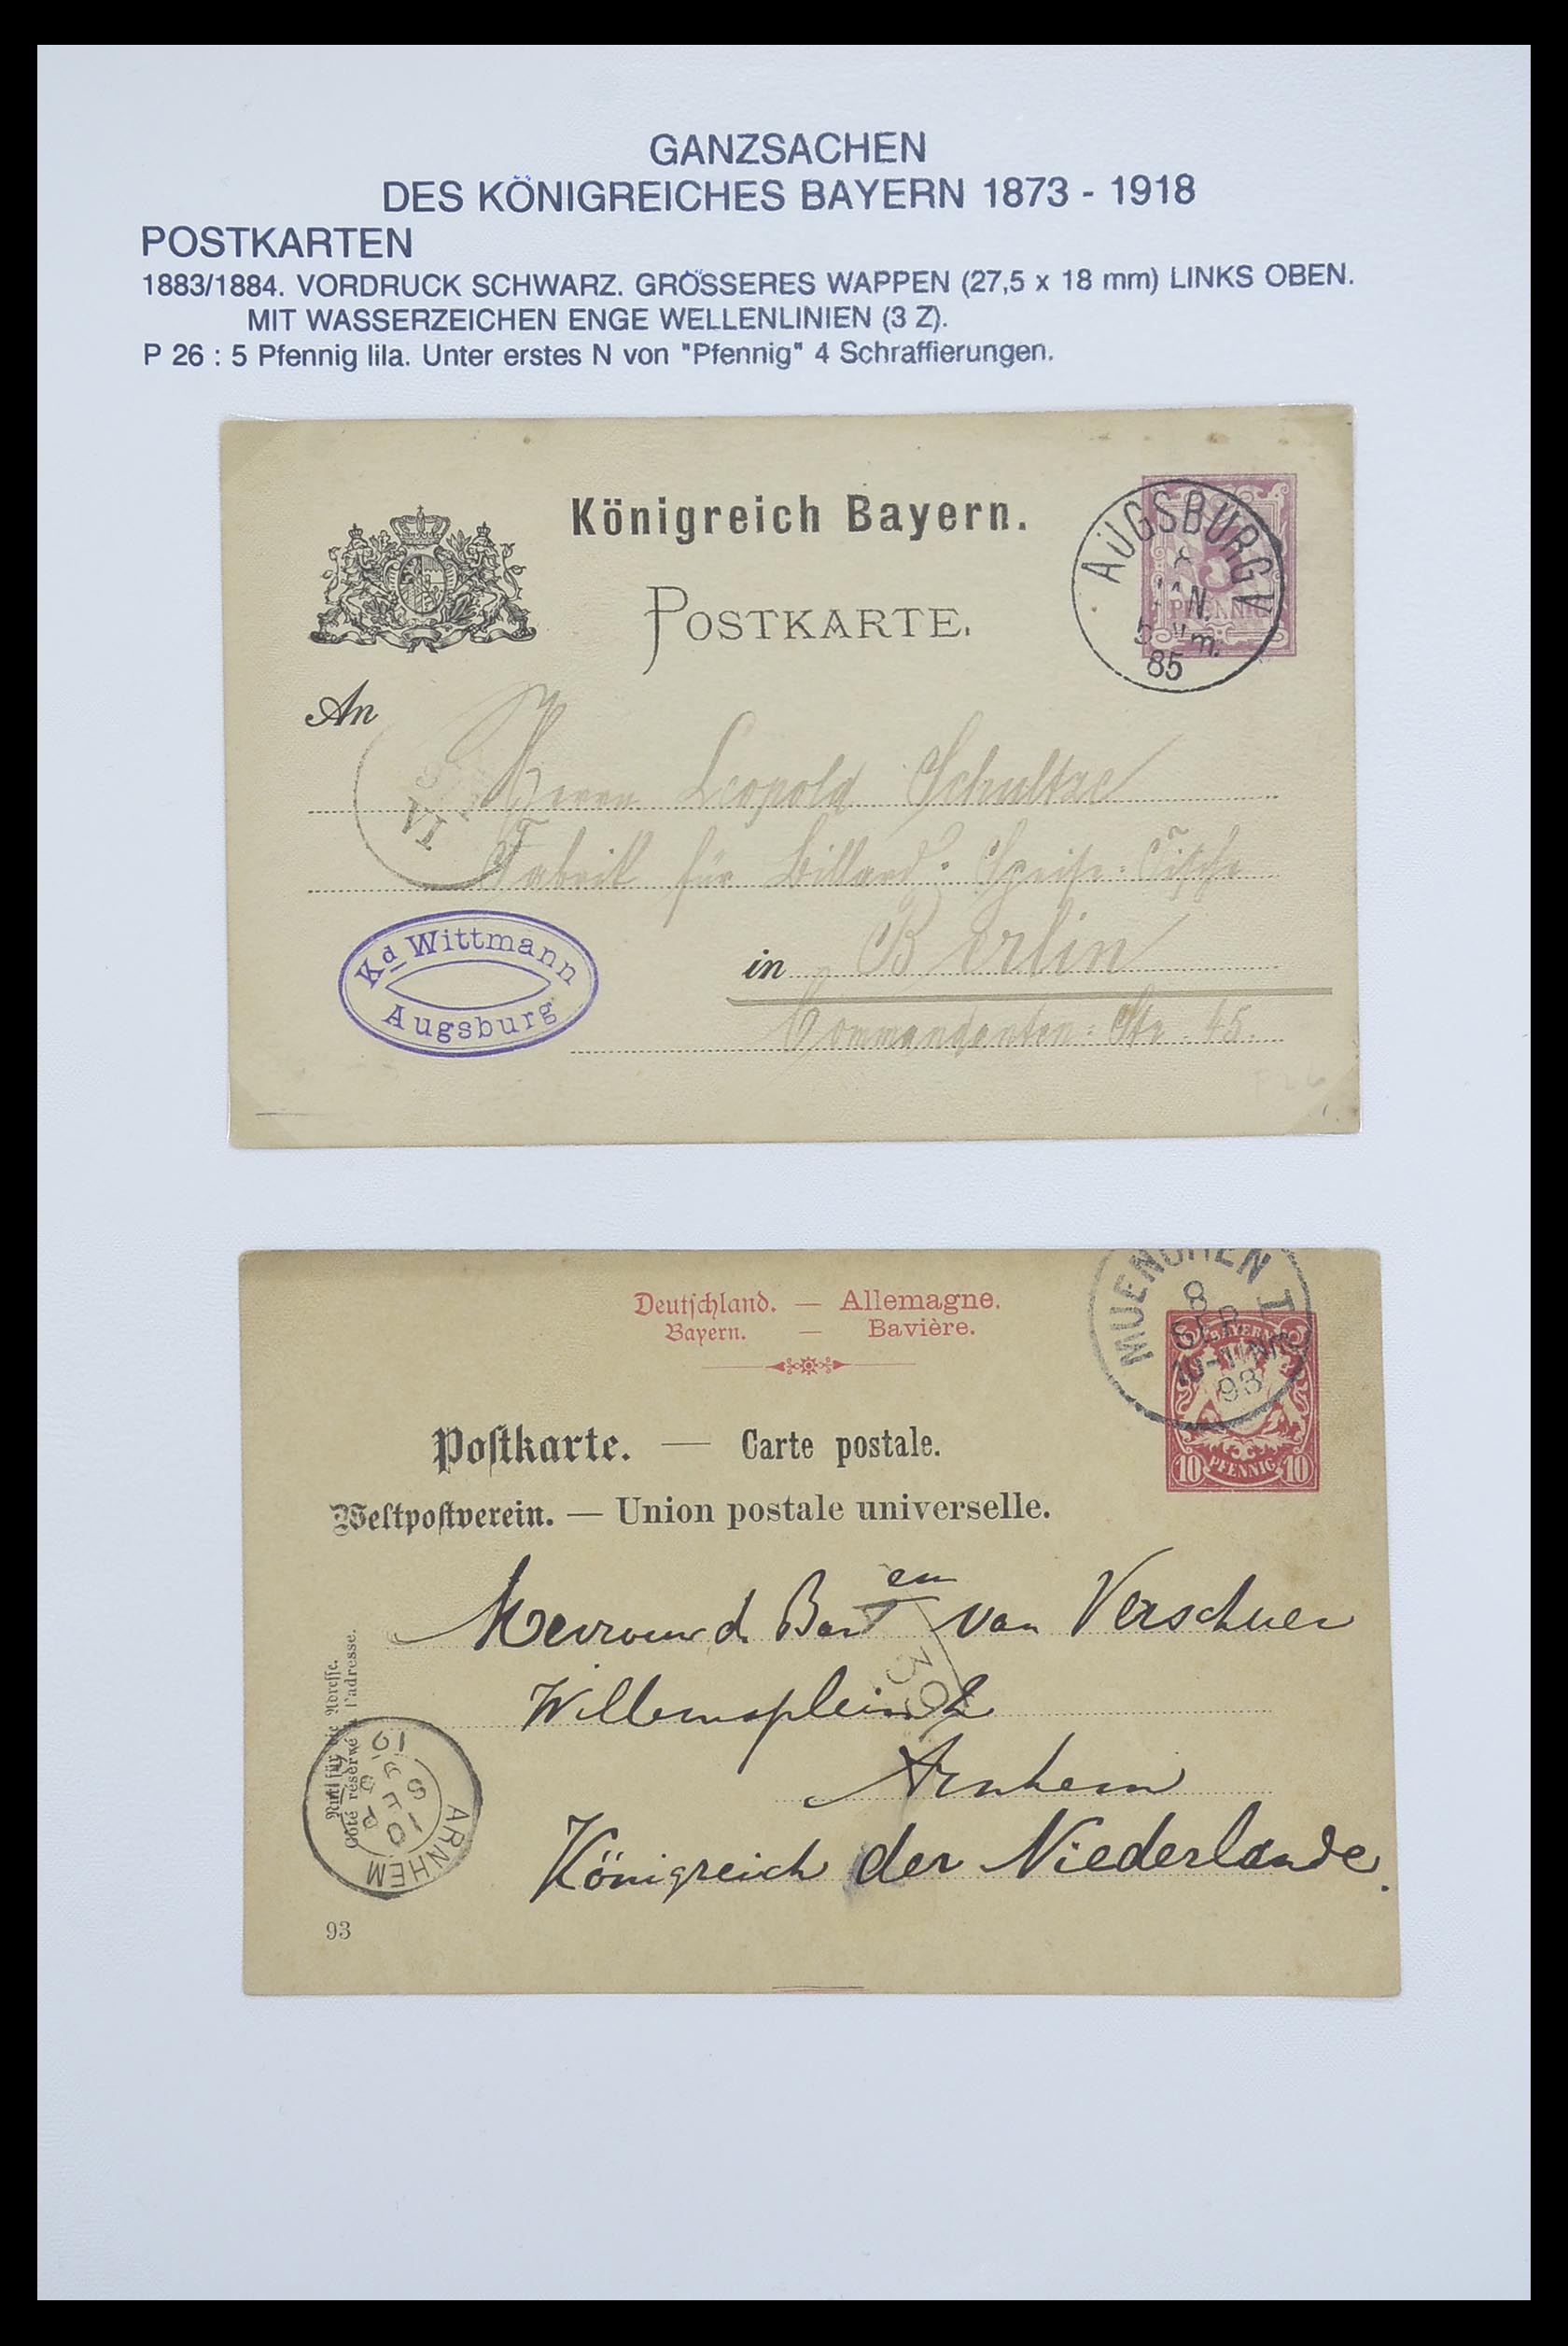 GANZSACHEN
DES KÖNIGREICHES BAYERN 1873 - 1918
POSTKARTEN
1883/1884. VORDRUCK SCHWARZ. GRÖSSERES WAPPEN (27,5 x 18 mm) LINKS OBEN.
MIT WASSERZEICHEN ENGE WELLENLINIEN (3 Z).
P 26 : 5 Pfennig lila. Unter erstes N von "Pfennig" 4 Schraffierungen.
Königreich Bayern.
POSTKARTE.
AUGSBURG
85
PFENNIG
An
VI
Herrn Leopold Schultze
Fabrik für Billard- Speise-Tische
in Berlin
Commandanten-Str. 45.
Kd Wittmann
Augsburg
Deutſchland. — Allemagne.
Bayern. — Bavière.
MUENCHEN I
8
SEP
93
BAYERN
10 PFENNIG 10
Poſtkarte. — Carte postale.
Weltpoſtverein. — Union postale universelle.
van Verschuer
Willemsplein
Arnhem
Königreich der Niederlande.
Nur für die Adreſſe.
Côté réservé à l'adresse.
ARNHEM
93